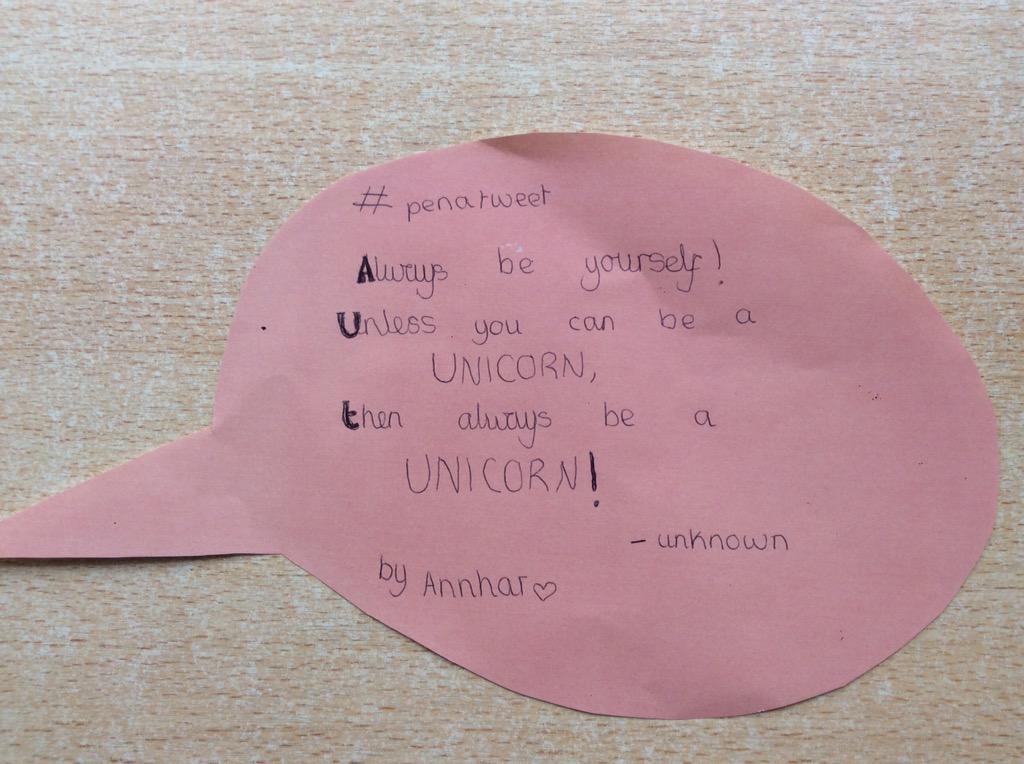 # penatweet
Always be yourself!
Unless you can be a
UNICORN,
then always be a
UNICORN!
- unknown
by Annhar♡